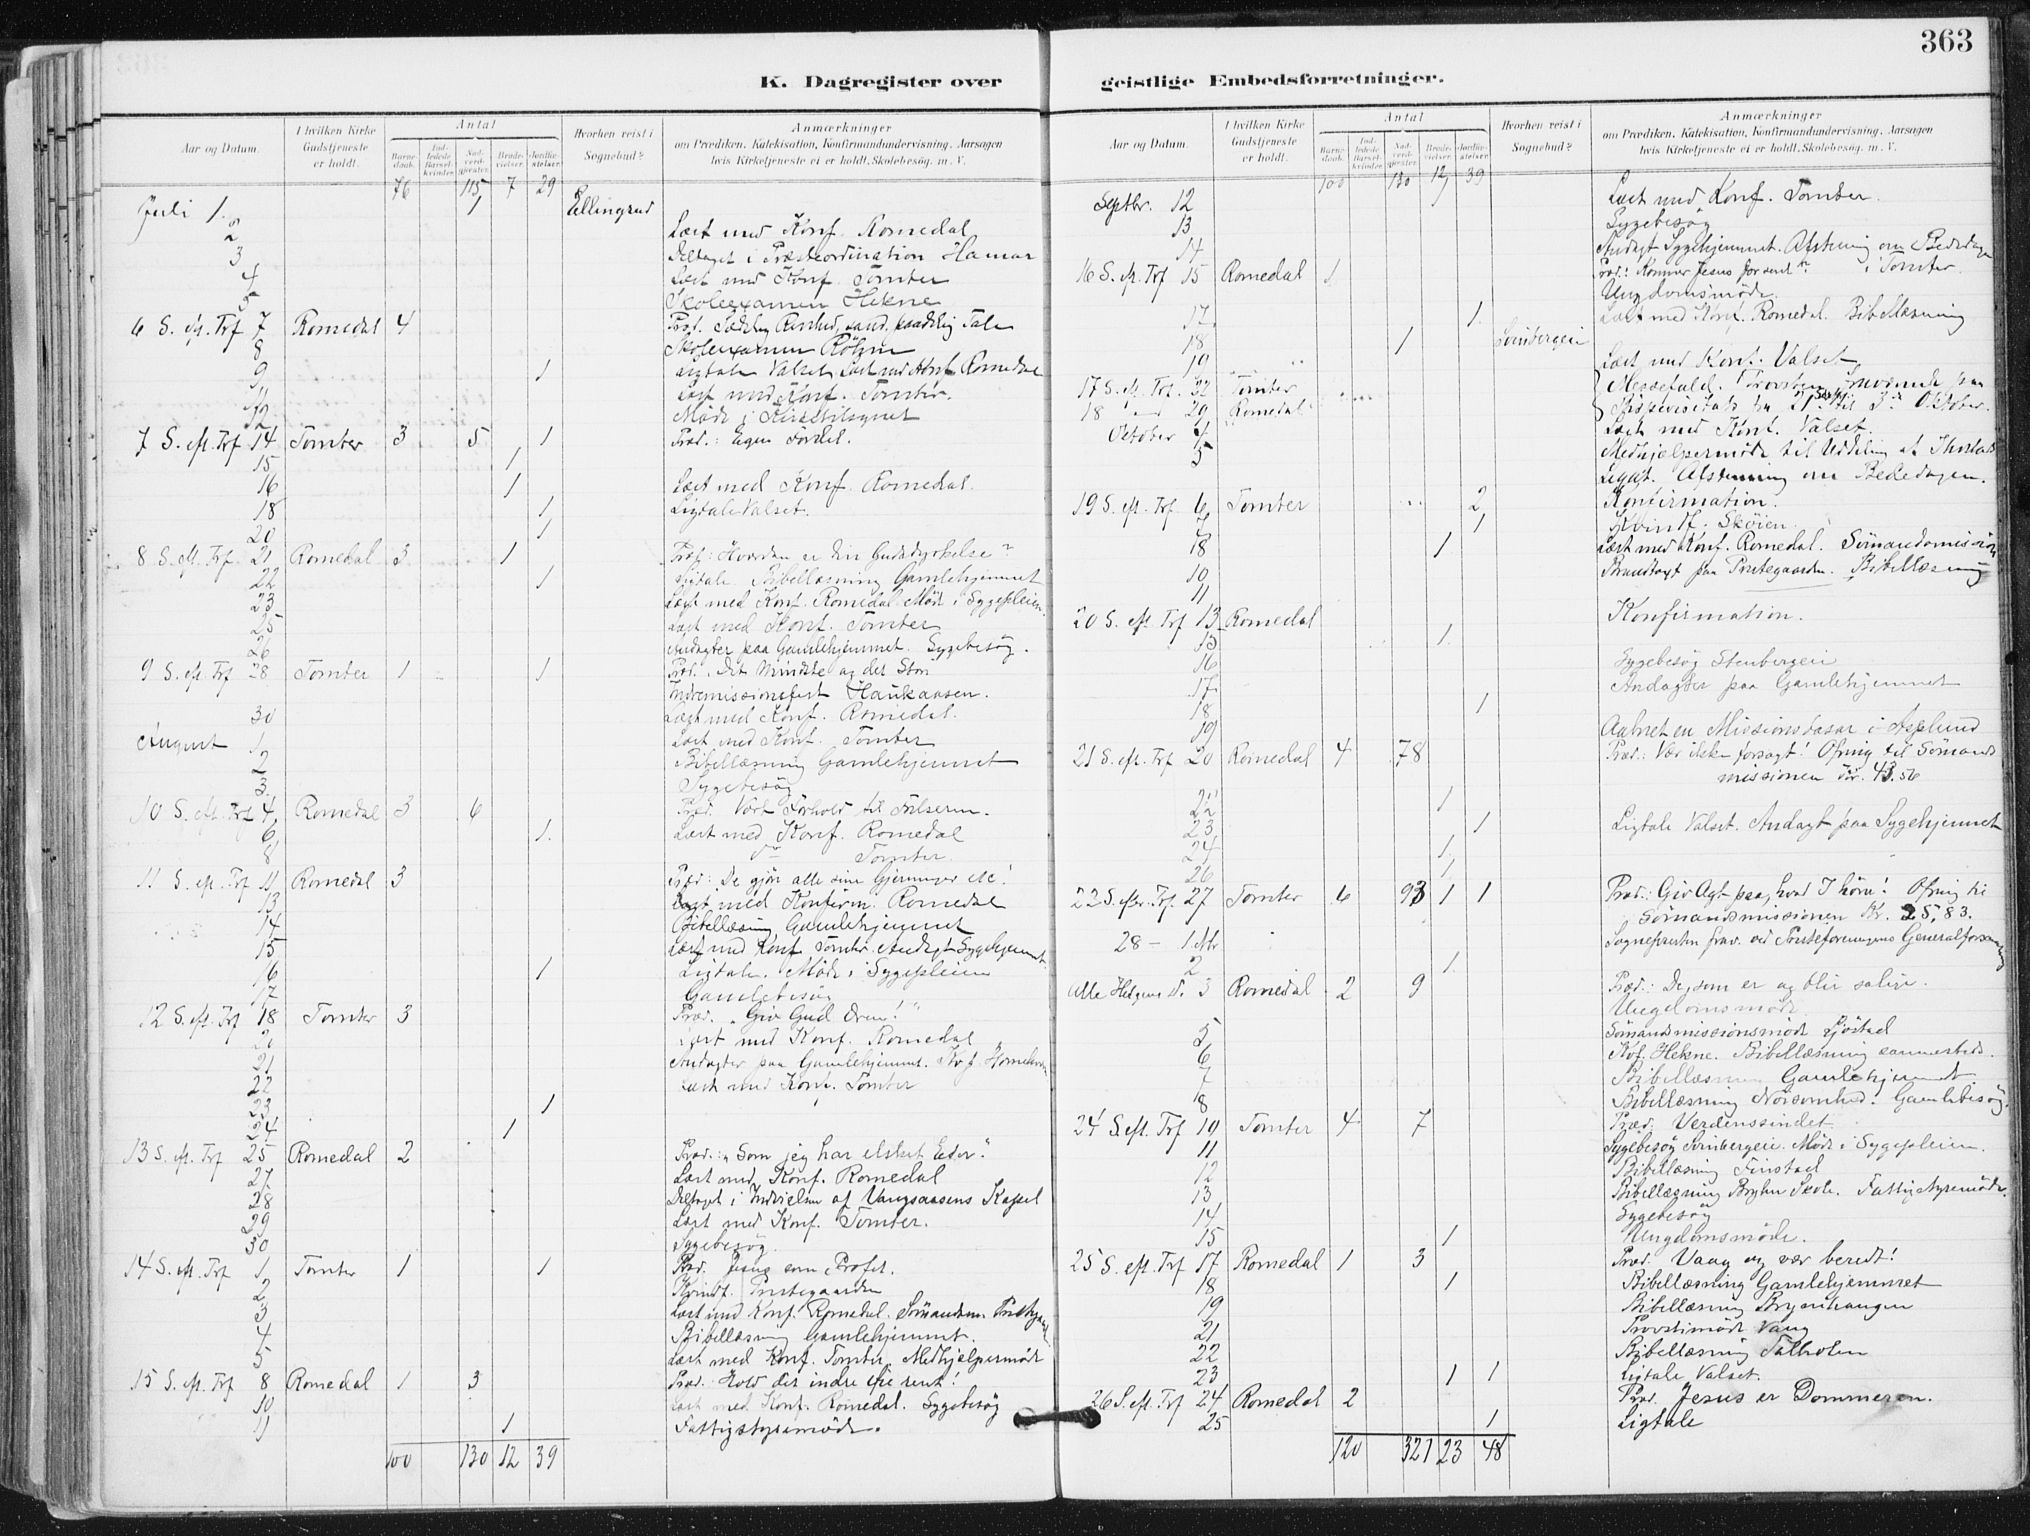 363
K. Dagregister over geistlige Embedsforretninger.
Aar og Datum. I hvilken Kirke Gudstjeneste er holdt. Antal Barnedaab. Indledede Barselkvinder. Nadverdgjester. Brudevielser. Jordfæstelser. Hvorhen reist i Sognebud? Anmærkninger om Prædiken, Katekisation, Konfirmandundervisning, Aarsagen hvis Kirketjeneste ei er holdt, Skolebesøg, m. V.
76 115 7 29
Juli 1. 1 Ellingsrud
2 Læst med Konf. Romedal
3 Deltaget i Præsteordination Hamar
4 Læst med Konf. Tomter
5 Skoleexamen Hekne
6 S. eft. Trf 7 Romedal 4
8 Skoleexamen
9 1 Ligtale Valset. Læst med Konf. Romedal
11 Læst med Konf. Tomter.
12 Møde i Kirketilsynet
7 S. eft. Trf 14 Tomter 3 5 1 Præd.:
15 1
16 1 Læst med Konf. Romedal.
18 1 Ligtale Valset.
20 1
8 S. eft. Trf. 21 Romedal 3 1 Præd: Hvordan er din Gudsdyrkelse?
22 1 Ligtale. Bibellæsning Gamlehjemmet
23 Læst med Konf. Romedal. Møde i Sygepleien
25 Læst med Konf. Tomter
26 Andagter paa Gamlehjemmet. Sygebesøg.
9 S. eft. Trf 28 Tomter 1 1 Præd. Det Mindste og det Store
Indremissionsfest Haukaasen.
30 Læst med Konf. Romedal.
August 1 Læst med Konf. Tomter
2 Bibellæsning Gamlehjemmet
3 Sygebesøg
10 S. eft. Trf 4 Romedal 3 6 Præd. Vort Forhold til Frelseren.
6 1. Læst med Konf. Romedal
8 do Tomter.
11 S. eft. Trf 11 Romedal 3 Præd: De gjør alle sine Gjerninger etc!
13 Læst med Konfirm. Romedal
14 Bibellæsning Gamlehjemmet
15 Læst med Konf Tomter. Andagt Sygehjemmet.
16 1 Ligtale. Møde i Sygepleien
17 Gamlebesøg
12 S. eft. Trf 18 Tomter 3 Præd. „Giv Gud Æren!"
20 Læst med Konf. Romedal
21 Andagter paa Gamlehjemmet.
22 Læst med Konf. Tomter
23 1
24 1
13 S. eft. Trf 25 Romedal 2 Præd.: „Som jeg har elsket Eder."
27 Læst med Konf. Romedal
28 Deltaget i Indvielsen af Vangsaasens Kapel
29 Læst med Konf. Tomter.
30 Sygebesøg.
14 S. eft. Trf 1 Tomter 1 1 Præd. Jesus som Profet.
2 Kvindf. Prestegaarden
3 Læst med Konf. Romedal.
4 Bibellæsning Gamlehjemmet.
5 Læst med Konf. Tomter. Medhjælpermøde
15 S. eft. Trf 8 Romedal 1 3 Præd.: Hold det indre Øie rent!
10 Læst med Konf. Romedal. Sygebesøg
11 1 Fattigstyremøde.
100 130 12 39
Aar og Datum. I hvilken Kirke Gudstjeneste er holdt. Antal Barnedaab. Indledede Barselkvinder. Nadverdgjester. Brudevielser. Jordfæstelser. Hvorhen reist i Sognebud? Anmærkninger om Prædiken, Katekisation, Konfirmandundervisning, Aarsagen hvis Kirketjeneste ei er holdt, Skolebesøg, m. V.
100 130 12 39
Septbr. 12 1 Læst med Konf. Tomter.
13 Sygebesøg
14 Andagt Sygehjemmet. Afstemning om Bededagen
16 S. eft. Trf 15 Romedal 1 i Tomter.
Ungdomsmøde.
17 1 Læst med Konf. Romedal. Bibellæsning
18 1
19 Læst med Konf. Valset
17 S. eft. Trf. 22 Tomter
18 29 Romedal Bispevisitats fra 21 Sept. til 3die Oktober.
Oktober 4 Læst med Konf. Valset.
5 Medhjælpermøde til Uddeling af
Legat. Afstemning om Bededagen.
19 S. eft. Trf. 6 Tomter 2 Konfirmation.
7 1 Kvindf. Skøien.
8 1 Læst med Konf. Romedal. Sømandsmission
10 paa Prestegaarden. Bibellæsning
11
20 S. eft. Trf 13 Romedal Konfirmation.
15 1
16 Sygebesøg Stenbergeie
17 Andagter paa Gamlehjemmet
18 1
19 Aabnet en Missionsbasar i Asplund
21 S. eft. Trf 20 Romedal 4 78 Præd.: Vær ikke forsagt! Ofring til Sømands
missionen Kr. 43.56
22 1
23 1 Ligtale Valset. Andagt paa Sygehjemmet
24 1
26 1
22 S. efter Trf. 27 Tomter 6 93 1 1 Præd.: Giv Agt paa, hvad I høre! Ofring til
Sømandsmissionen Kr. 25,83.
28 - 1 Nov Sognepresten frav. ved Presteforeningens Generalforsamling
2 1
Alle Helgens D. 3 Romedal 2 9 Præd.: De, som er og blir salige.
Ungdomsmøde.
5 Sømandsmissionsmøde Sjøstad
6 Kvf. Hekne. Bibellæsning sammesteds.
7 Bibellæsning Gamlehjemmet
8 Bibellæsning Nøisomhed. Gamlebesøg.
24 S. eft. Trf 10 Tomter 4 7 Præd. Verdenssindet.
11 Sygebesøg. Møde i Sygepleien.
12 Bibellæsning Finstad
13 Bibellæsning Bryhn Skole. Fattigstyremøde.
14 Sygebesøg
15 1 Ungdomsmøde.
25 S. eft. Trf 17 Romedal 1 3 Præd. Vaag og vær beredt!
18 1 Bibellæsning Gamlehjemmet
19 Bibellæsning Brynhaugen
21 Provstimøde Vang
22 Bibellæsning
23 1 1 Ligtale Valset.
26 S. eft. Trf 24 Romedal 2 Præd. Jesus er Dommeren.
25 1 Ligtale
120 321 23 48